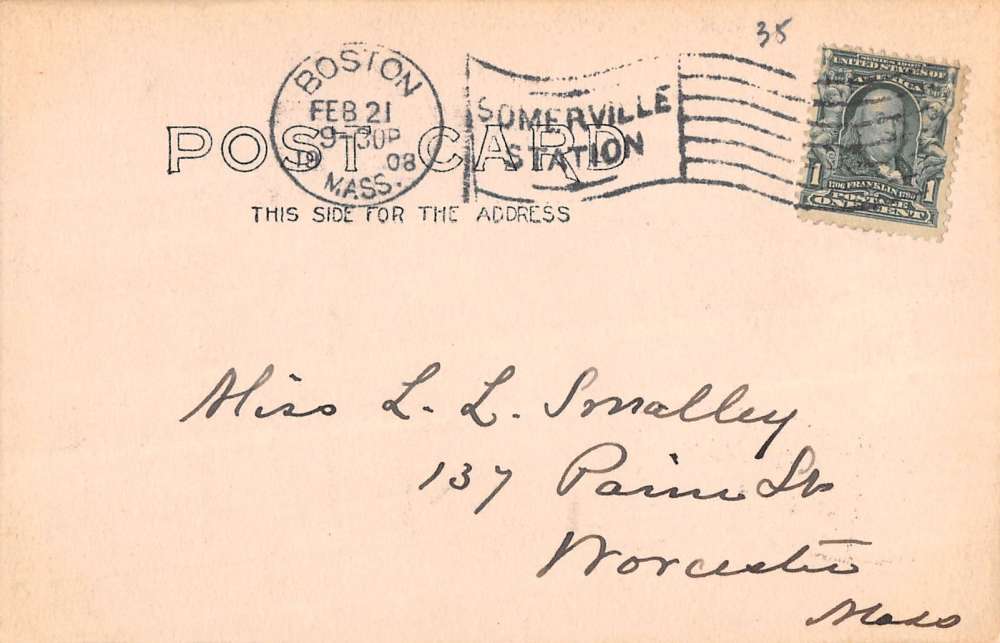 35
BOSTON
FEB 21
9-30P
1908
MASS.
SOMERVILLE
STATION
SERIES 1902
UNITED STATES OF
AMERICA
1706 FRANKLIN 1790
POSTAGE
1 ONE CENT 1
POST CARD
THIS SIDE FOR THE ADDRESS
Miss L. L. Smalley
137 Paine St
Worcester
Mass